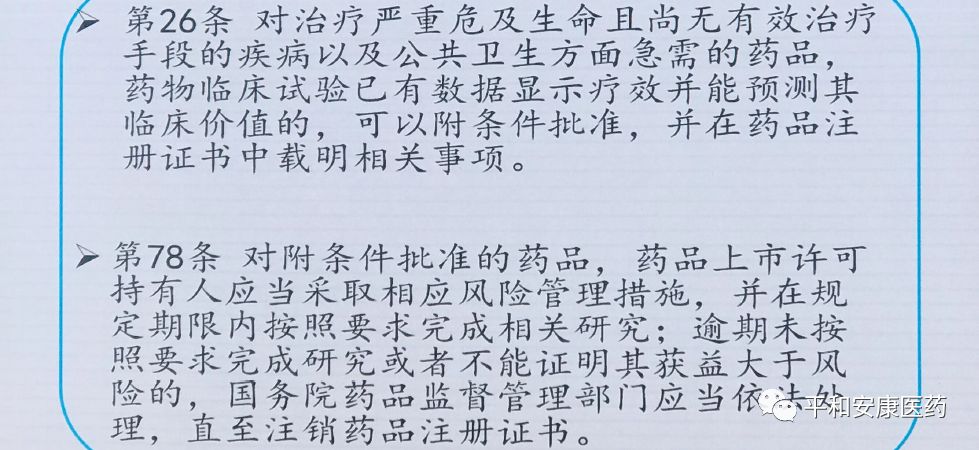 ➢ 第26条 对治疗严重危及生命且尚无有效治疗
手段的疾病以及公共卫生方面急需的药品，
药物临床试验已有数据显示疗效并能预测其
临床价值的，可以附条件批准，并在药品注
册证书中载明相关事项。
➢ 第78条 对附条件批准的药品，药品上市许可
持有人应当采取相应风险管理措施，并在规
定期限内按照要求完成相关研究；逾期未按
照要求完成研究或者不能证明其获益大于风
险的，国务院药品监督管理部门应当依法处
理，直至注销药品注册证书。
平和安康医药